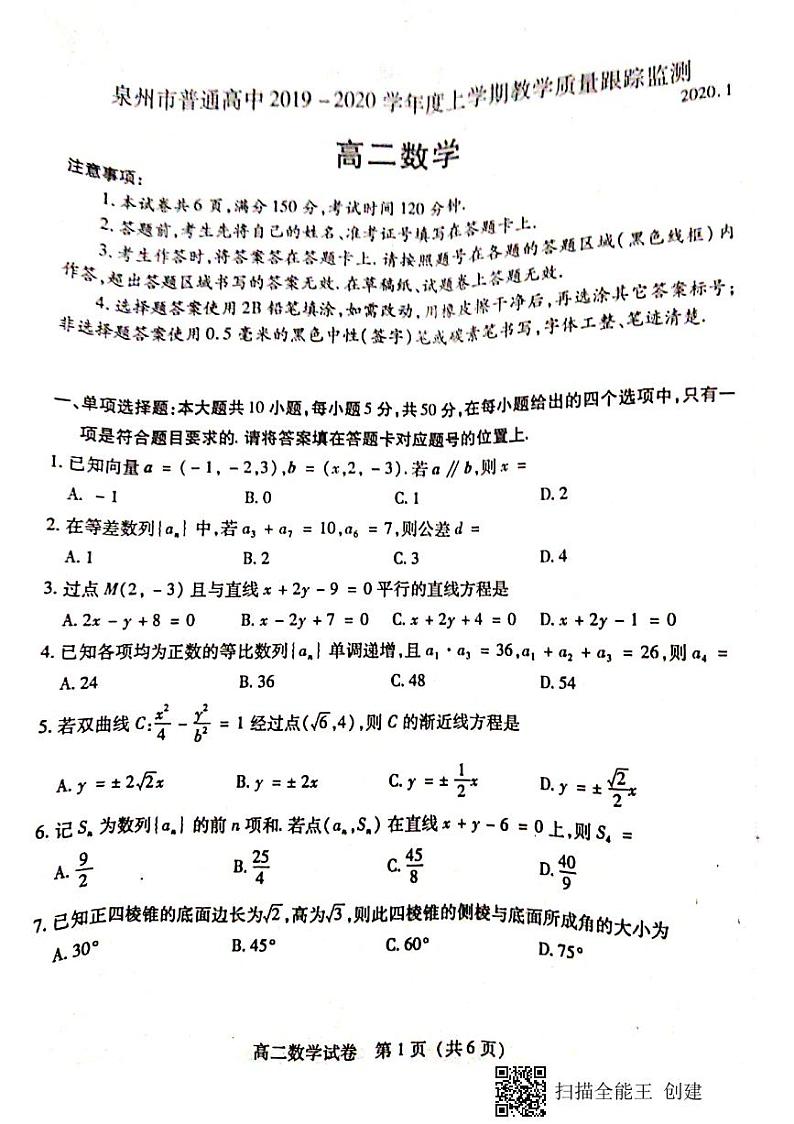 泉州市普通高中 2019-2020 学年度上学期教学质量跟踪监测
2020.1
高二数学
注意事项:
1. 本试卷共 6 页,满分 150 分,考试时间 120 分钟.
2. 答题前,考生先将自己的姓名、准考证号填写在答题卡上.
3. 考生作答时,将答案答在答题卡上. 请按照题号在各题的答题区域(黑色线框)内
作答,超出答题区域书写的答案无效. 在草稿纸、试题卷上答题无效.
4. 选择题答案使用 2B 铅笔填涂,如需改动,用橡皮擦干净后,再选涂其它答案标号;
非选择题答案使用 0.5 毫米的黑色中性(签字)笔或碳素笔书写,字体工整、笔迹清楚.
一、单项选择题:本大题共 10 小题,每小题 5 分,共 50 分,在每小题给出的四个选项中,只有一
项是符合题目要求的. 请将答案填在答题卡对应题号的位置上.
1. 已知向量 a = (-1, -2,3),b = (x,2, -3).若 a∥b,则 x =
A. -1 B. 0 C. 1 D. 2
2. 在等差数列{aₙ} 中,若 a₃ + a₇ = 10,a₆ = 7,则公差 d =
A. 1 B. 2 C. 3 D. 4
3. 过点 M(2, -3) 且与直线 x + 2y - 9 = 0 平行的直线方程是
A. 2x - y + 8 = 0 B. x - 2y + 7 = 0 C. x + 2y + 4 = 0 D. x + 2y - 1 = 0
4. 已知各项均为正数的等比数列{aₙ} 单调递增,且 a₁·a₃ = 36,a₁ + a₂ + a₃ = 26,则 a₄ =
A. 24 B. 36 C. 48 D. 54
5. 若双曲线 C:x²/4 - y²/b² = 1 经过点(√6,4),则 C 的渐近线方程是
A. y = ±2√2x B. y = ±2x C. y = ±1/2x D. y = ±√2/2x
6. 记 Sₙ 为数列{aₙ} 的前 n 项和. 若点(aₙ,Sₙ) 在直线 x + y - 6 = 0 上,则 S₄ =
A. 9/2 B. 25/4 C. 45/8 D. 40/9
7. 已知正四棱锥的底面边长为√2,高为√3,则此四棱锥的侧棱与底面所成角的大小为
A. 30° B. 45° C. 60° D. 75°
高二数学试卷 第 1 页 (共 6 页)
扫描全能王 创建